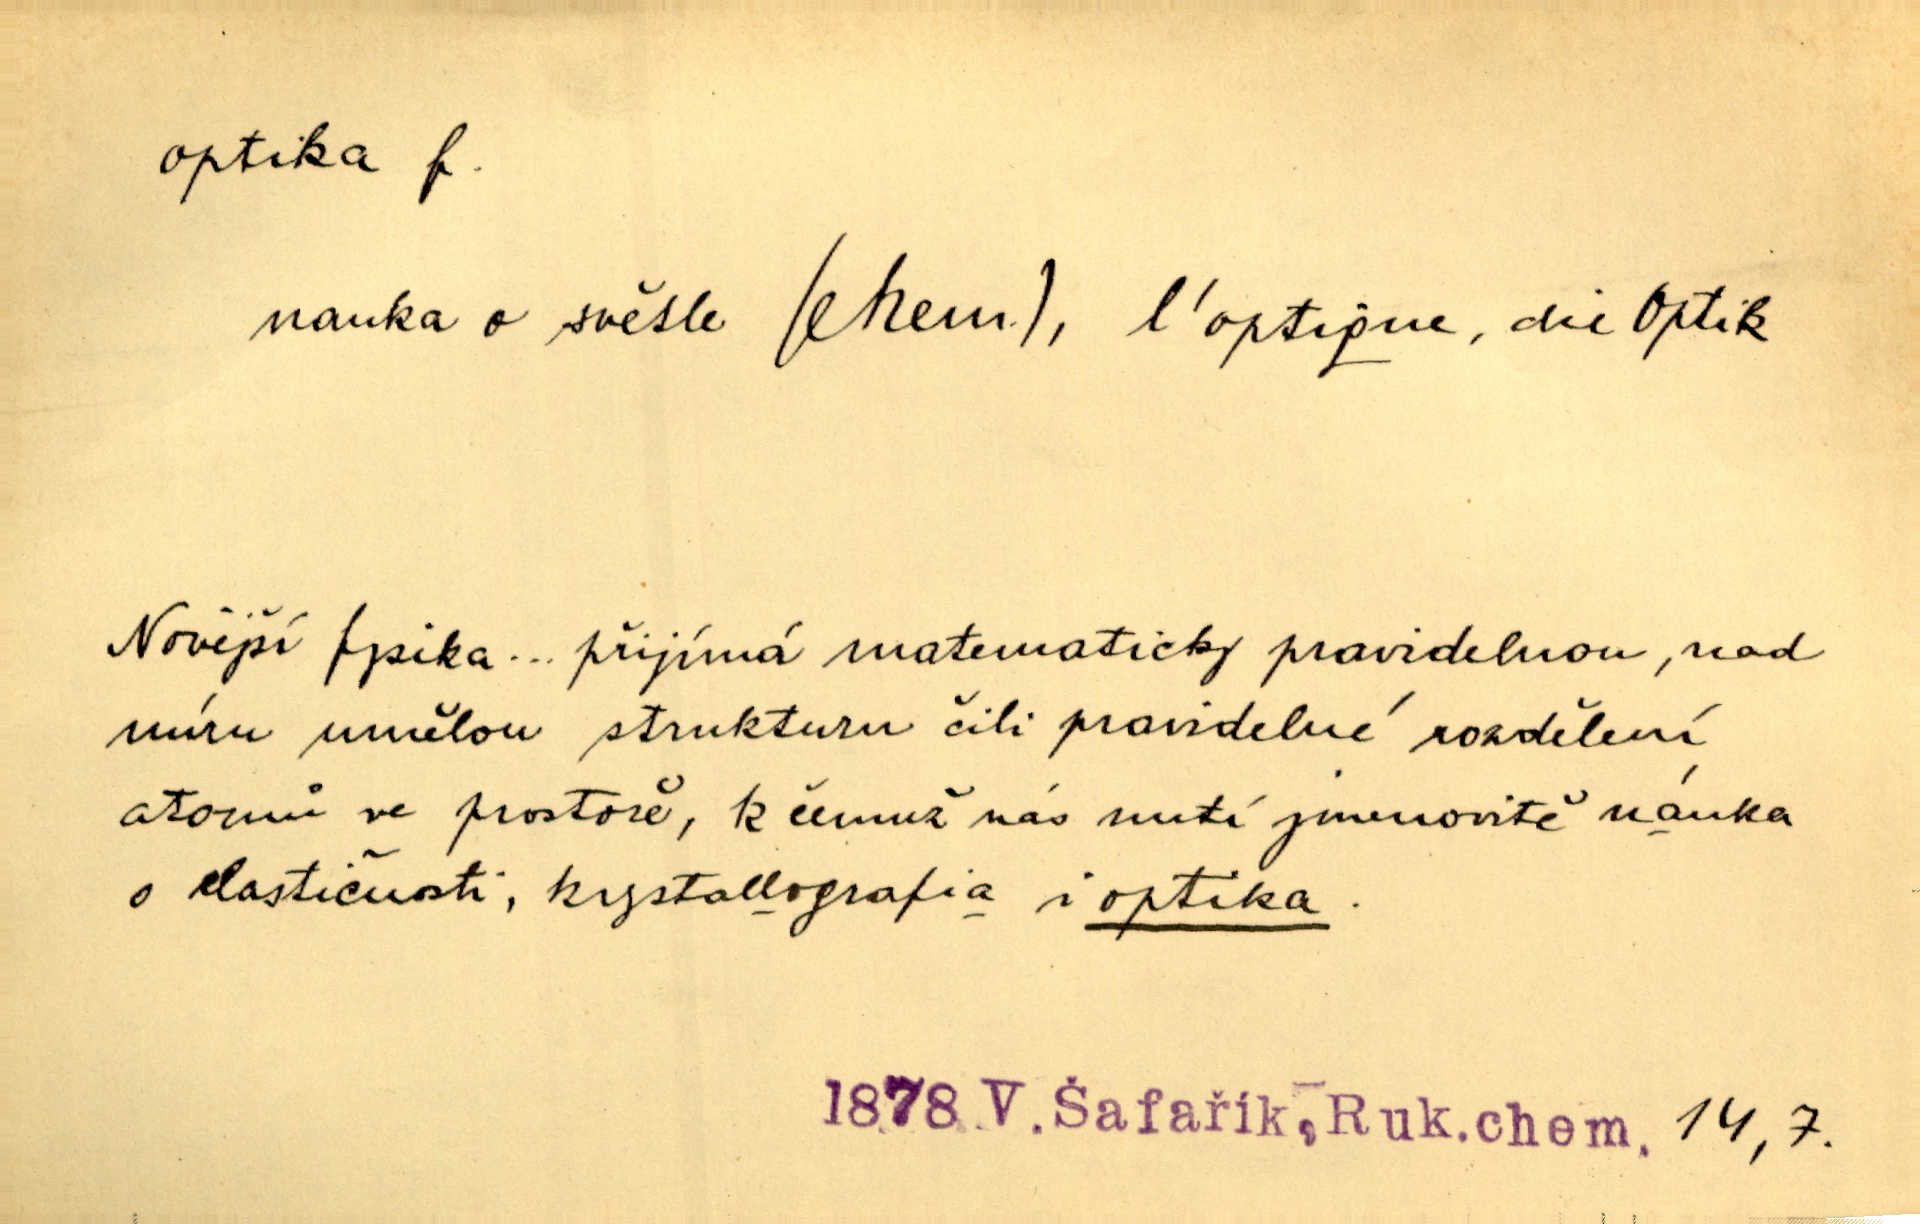 optika f.
nauka o světle (chem.), l'optique, die Optik
Novější fysika... přijímá matematicky pravidelnou, nad
míru umělou strukturu čili pravidelné rozdělení
atomů ve prostoře, k čemuž nás nutí jmenovitě náuka
o elastičnosti, krystallografia i optika.
1878 V. Šafařík, Ruk.chem. 14, 7.